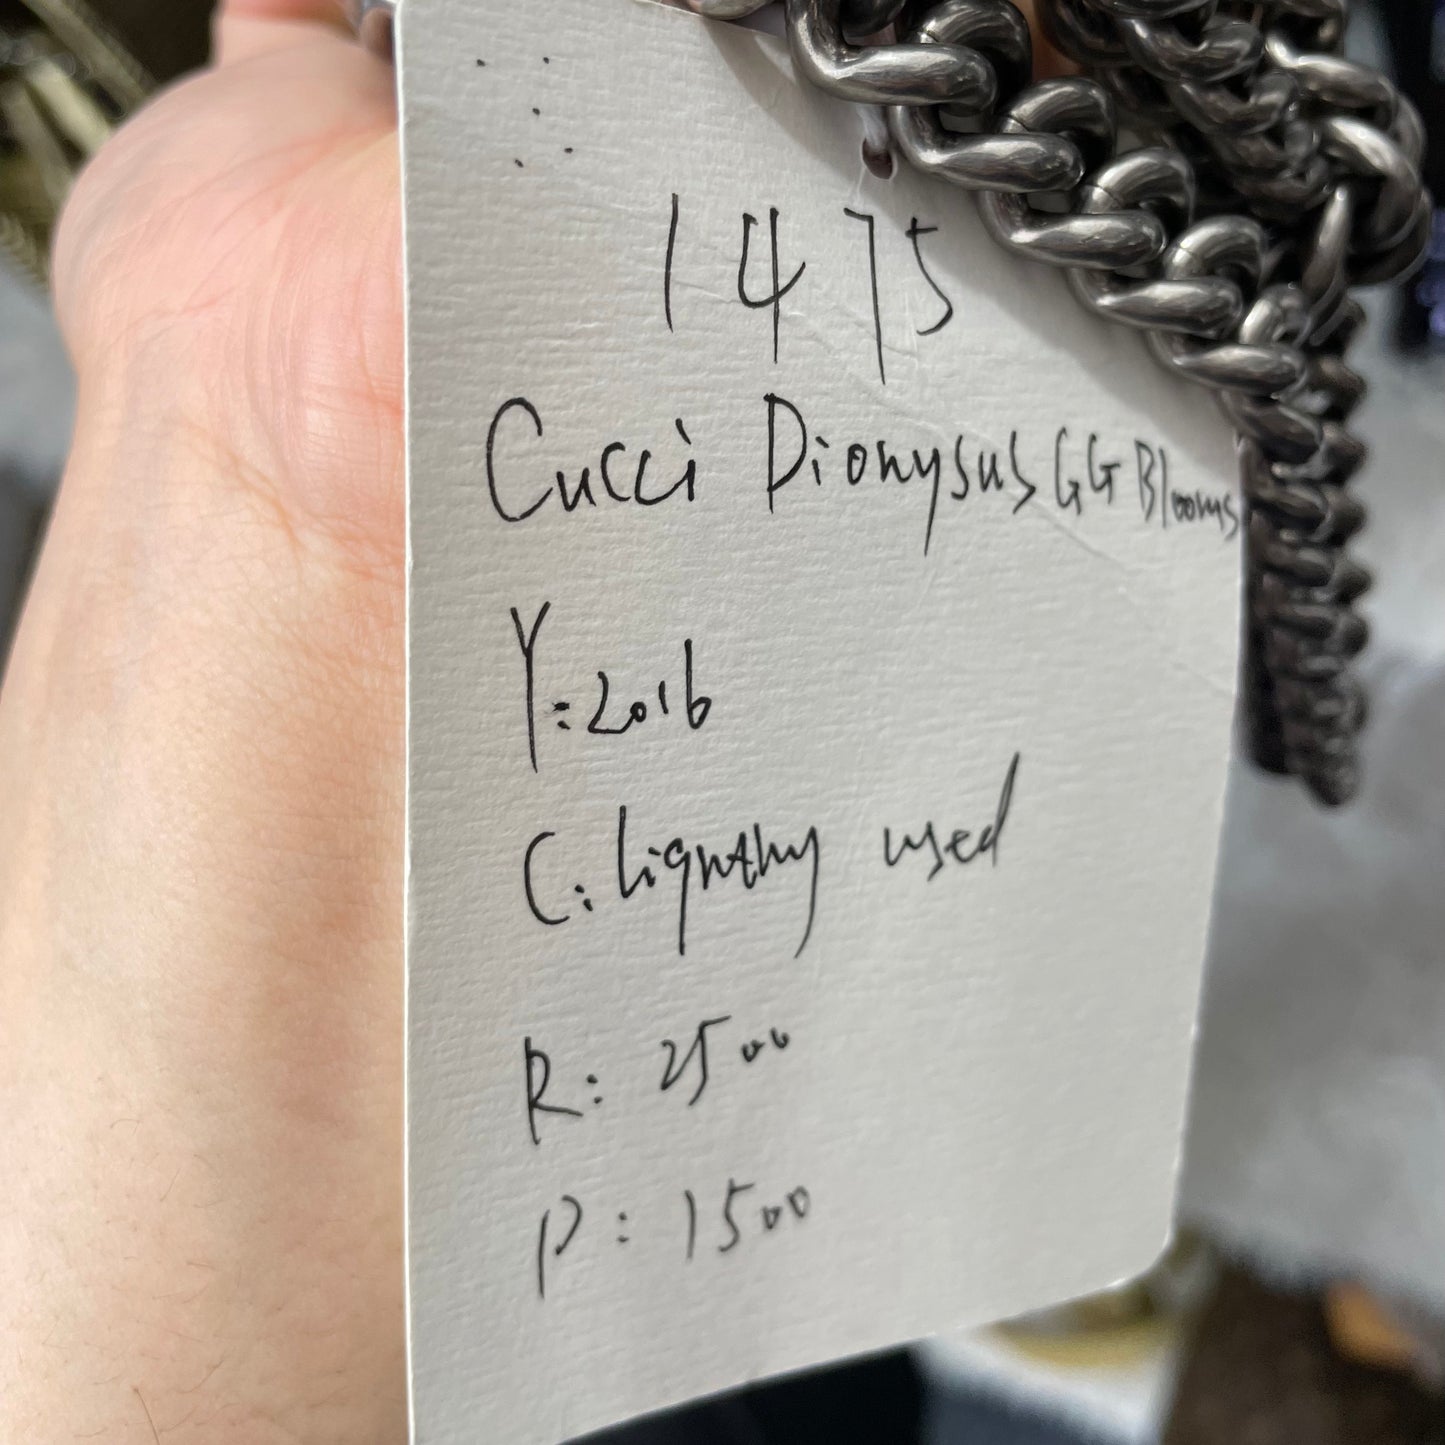 1475
Cucci Dionysus GG Blooms
Y: 2016
C: lignthy used
R: 2500
P: 1500